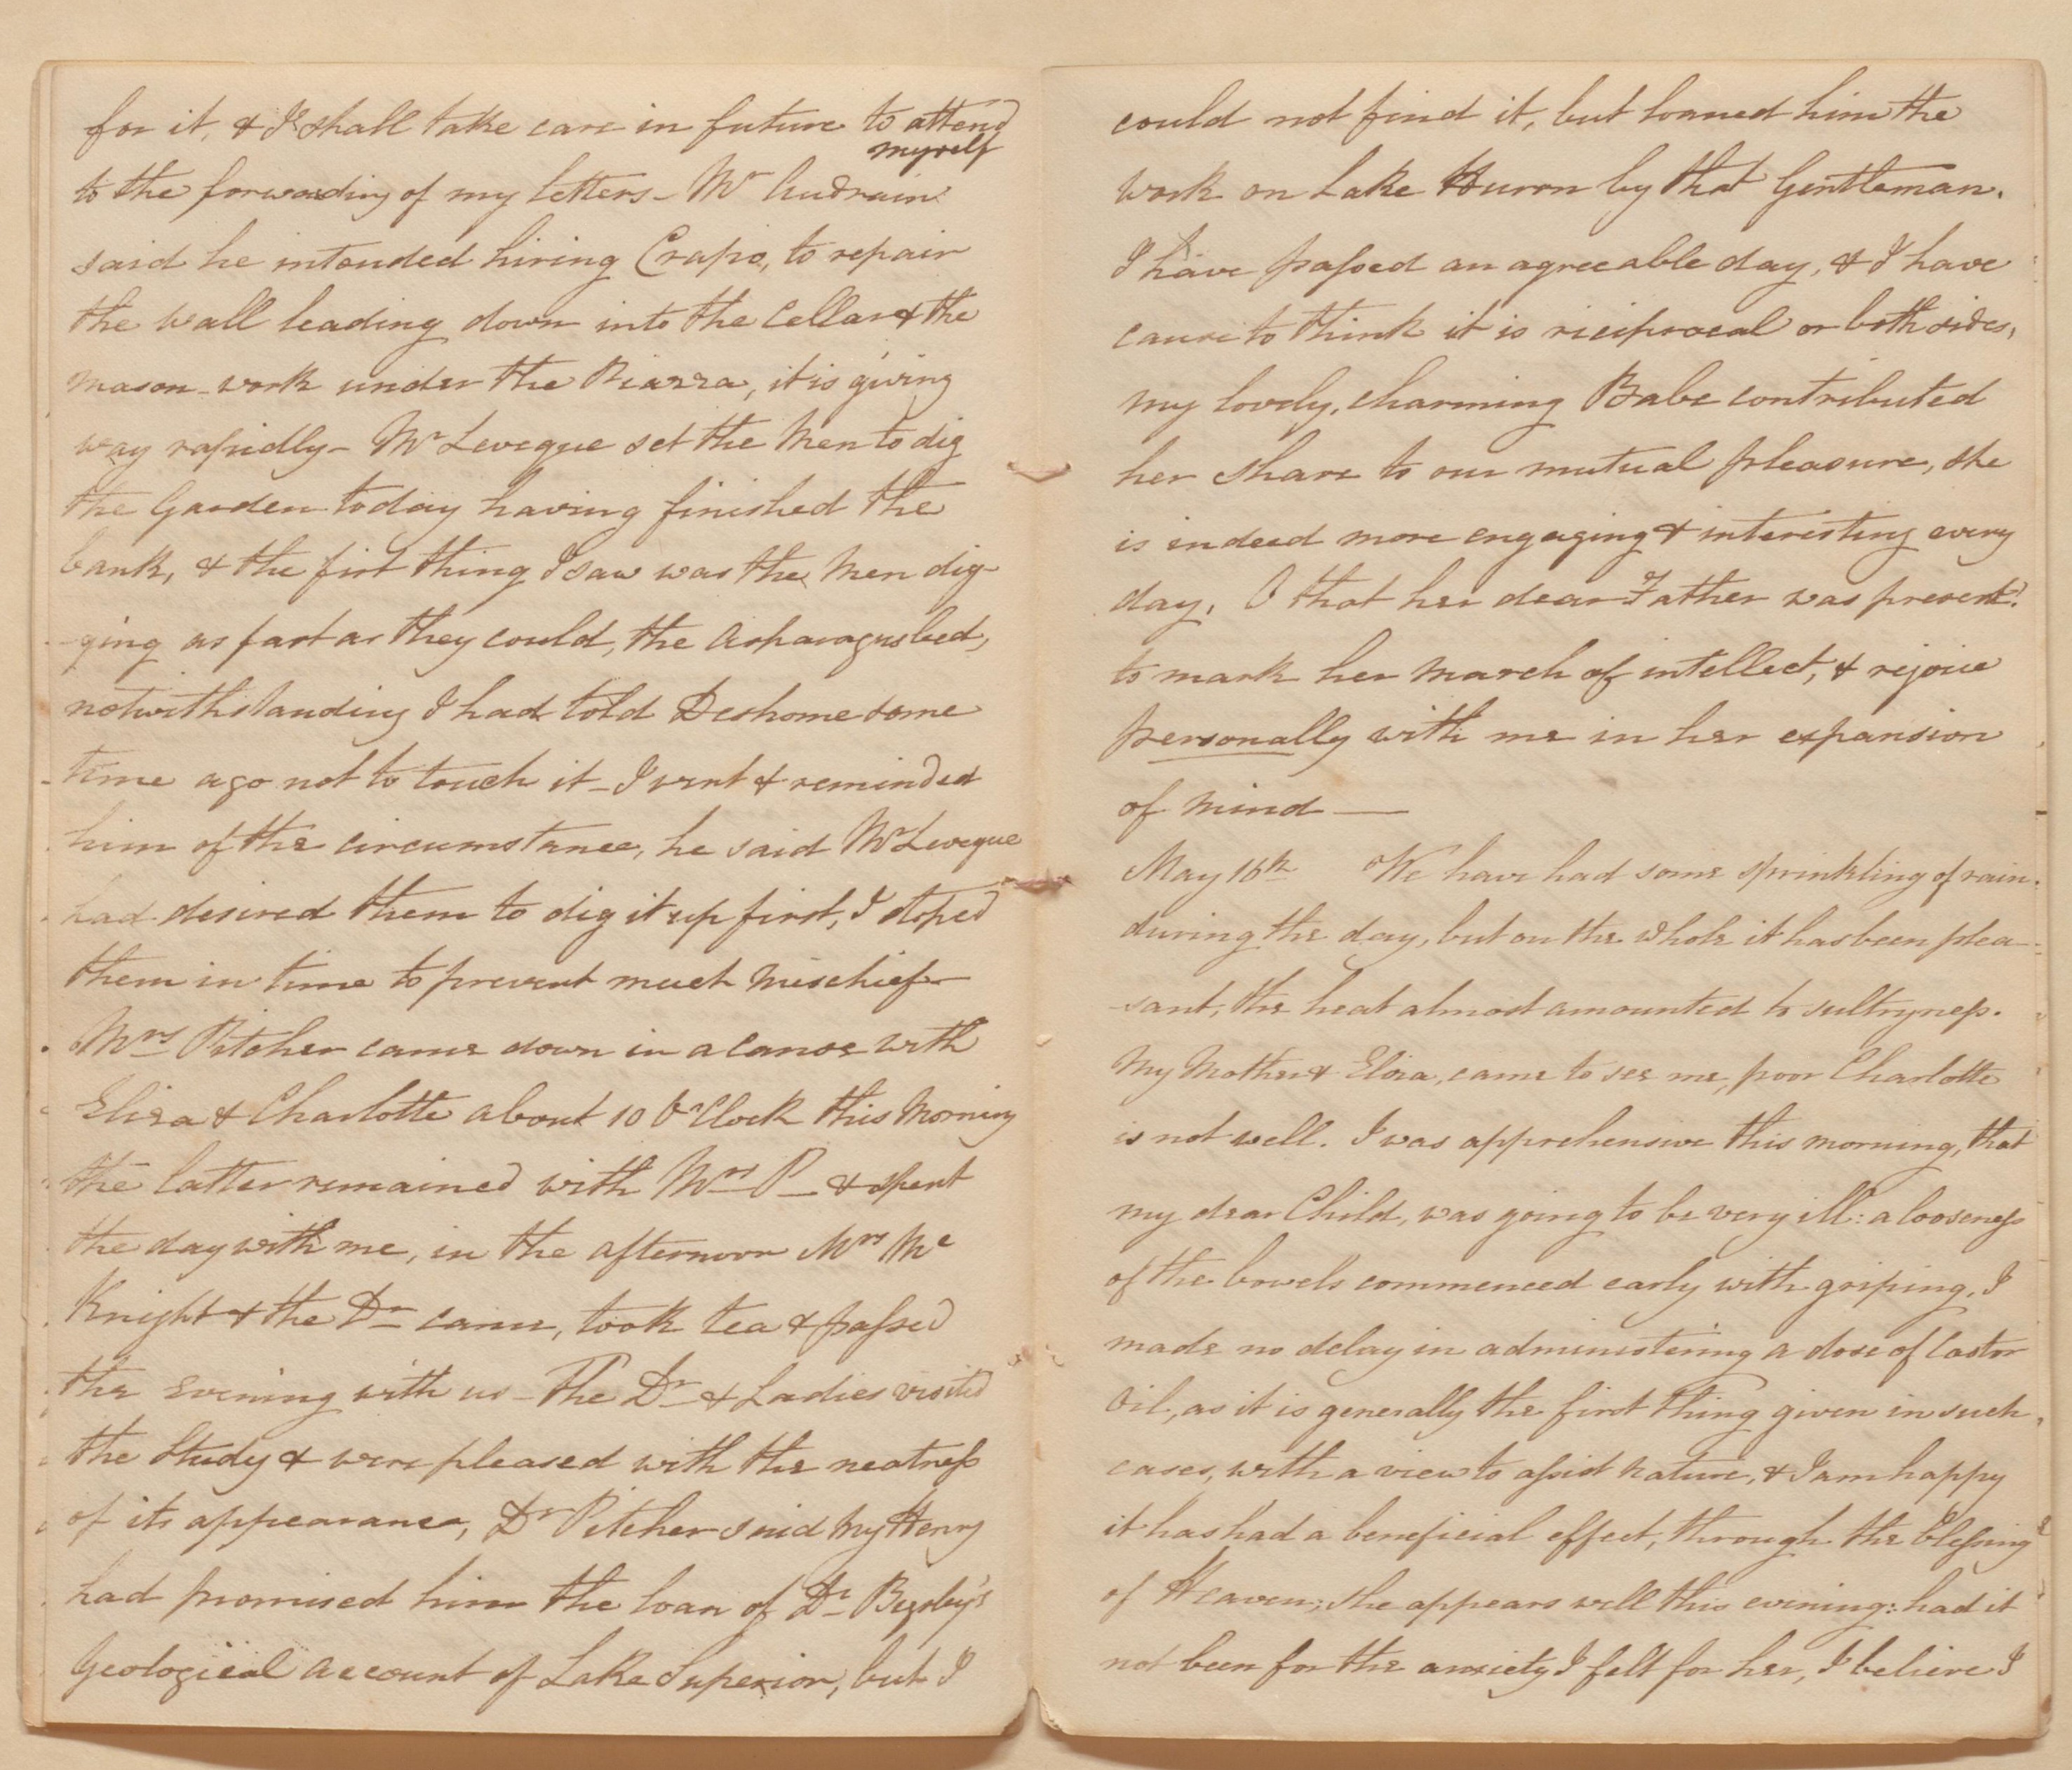 for it, & I shall take care in future to attend
myself
to the forwarding of my letters - Mr Audrain
said he intended hiring Crapo, to repair
the wall leading down into the Cellar & the
mason-work under the Piazza, it is giving
way rapidly - Mr Levegue set the Men to dig
the Garden today having finished the
bank, & the first thing I saw was the Men dig-
-ging as fast as they could, the Asparagus bed,
notwithstanding I had told Deshome some
time ago not to touch it - I went & reminded
him of the circumstance, he said Mr Levegue
had desired them to dig it up first, I stoped
them in time to prevent much Mischief -
Mrs Pitcher came down in a Canoe with
Eliza & Charlotte about 10 O'Clock this Morning
the latter remained with Mrs P- & spent
the day with me, in the afternoon Mrs Mc
Knight & the Dr came, took tea & passed
the evening with us - The Dr & Ladies visited
the Study & were pleased with the neatness
of its appearance, Dr Pitcher said my Henry
had promised him the loan of Dr Bigsby's
Geological account of Lake Superior, but I
could not find it, but loaned him the
work on Lake Huron by that Gentleman.
I have passed an agreeable day, & I have
cause to think it is riciprocal on both sides,
my lovely, charming Babe contributed
her share to our mutual pleasure, she
is indeed more engaging & interesting every
day, O that her dear Father was present!
to mark her march of intellect, & rejoice
personally with me in her expansion
of mind —
May 16th We have had some sprinkling of rain
during the day, but on the whole it has been plea-
-sant, the heat almost amounted to sultryness.
My Mother & Eliza, came to see me, poor Charlotte
is not well. I was apprehensive this morning, that
my dear Child, was going to be very ill: a looseness
of the bowels commenced early with griping, I
made no delay in administering a dose of Castor
Oil, as it is generally the first thing given in such
cases, with a view to assist nature, & I am happy
it has had a beneficial effect, through the blessing
of Heaven; she appears well this evening: had it
not been for the anxiety I felt for her, I believe I